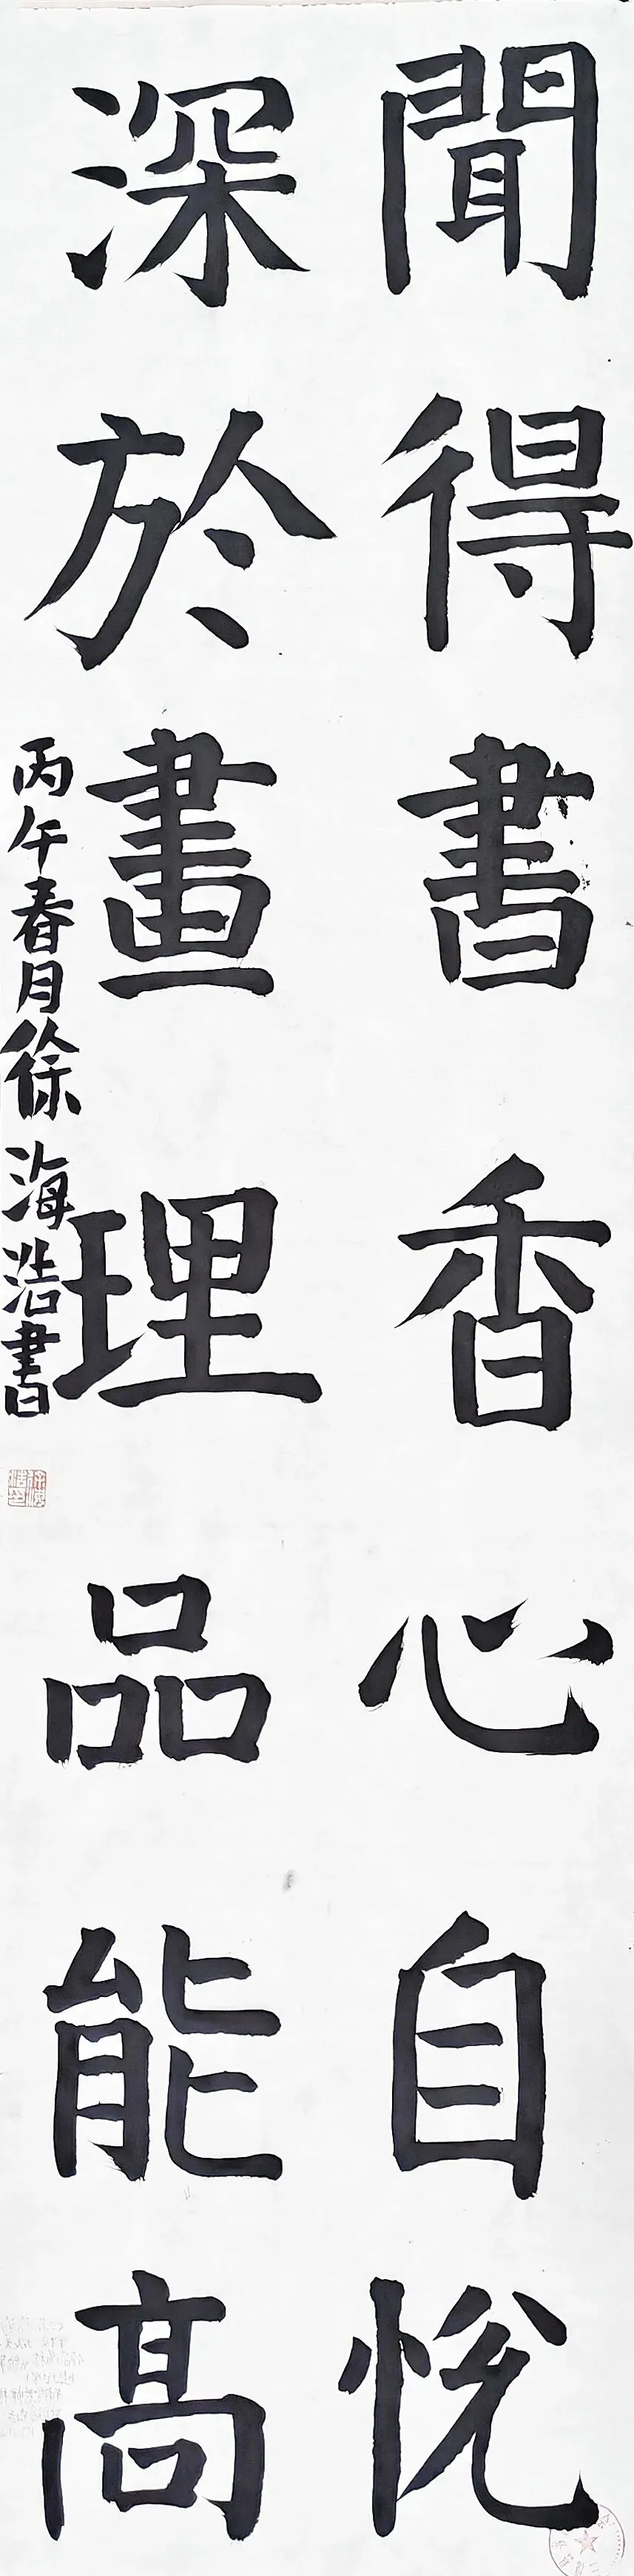 聞得書香心自悅
深於畫理品能高
丙午春月徐海浩書